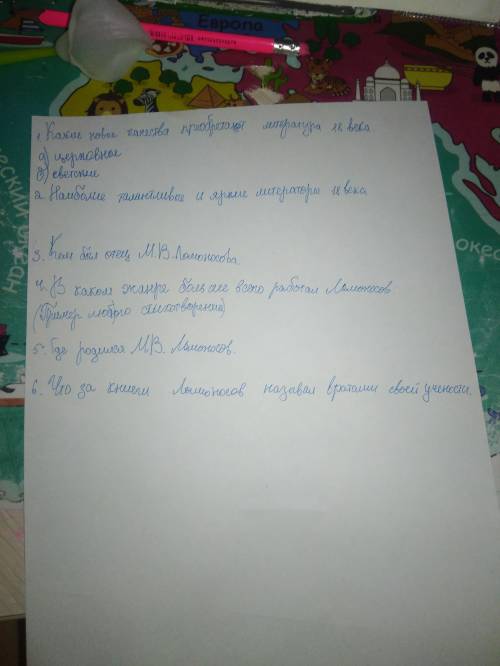 Европа
1. Какие новые качества приобретает литература 18 века.
а) церковное
б) светские
2. Наиболее талантливые и яркие литераторы 18 века
3. Кем был отец М.В. Ломоносова.
4. В каком жанре больше всего работал Ломоносов
(Пример любого стихотворения)
5. Где родился М.В. Ломоносов.
6. Что за книги Ломоносов называл вратами своей учености.